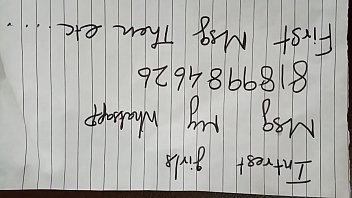 Intrest girls
Msg my Whatsapp
8189984626
First Msg Then etc.....